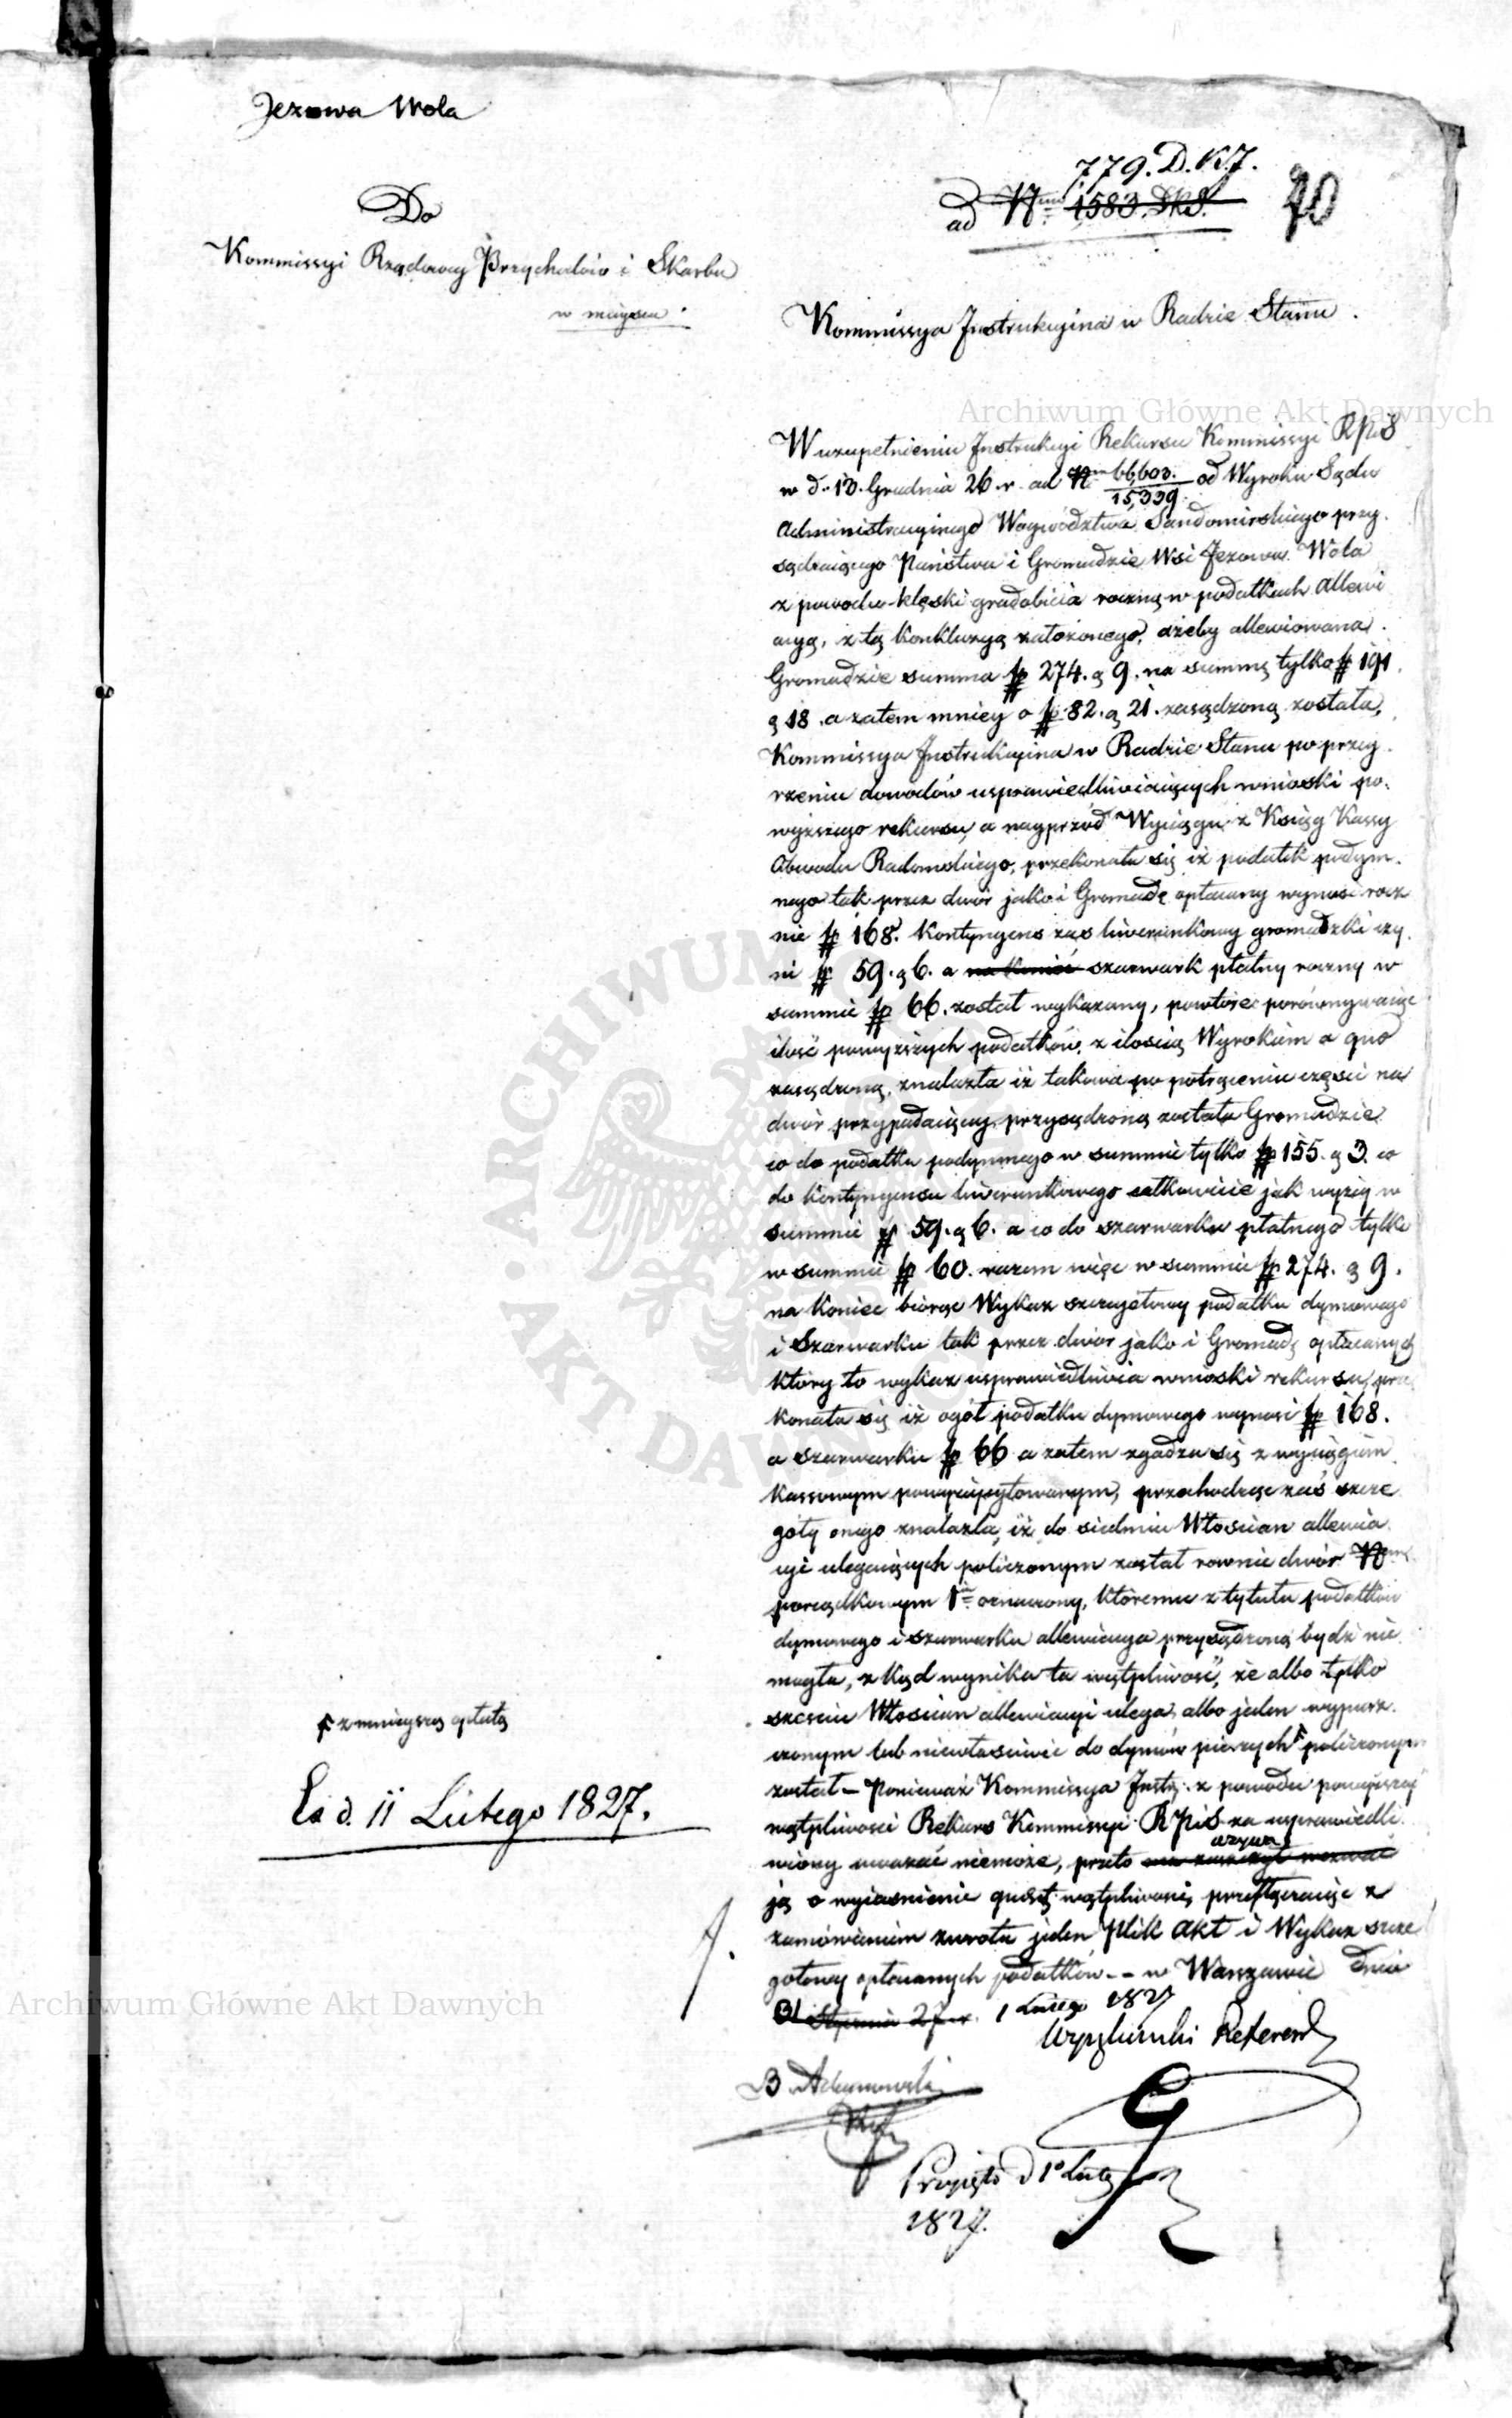 Jezowa Wola
779. D.K.J.
ad Nrum 1583. DKS.
70
Do
Kommissyi Rządowey Przychodów i Skarbu
w mieyscu.
Kommissya Instrukcyina w Radzie Stanu.
Archiwum Główne Akt Dawnych
W uzupełnieniu Instrukcyi Rekursu Kommissyi RPiS
w d. 13. Grudnia 26. r. ad Nrum 66,603./15,339. od Wyroku Sądu
Administracyinego Woyewództwa Sandomirskiego przy-
sądzaiącego Państwu i Gromadzie Wsi Jezowa Wola
z powodu klęski gradobicia roczną w podatkach allewi
acyą, z tą konkluzyą założonego, ażeby allewiowana
Gromadzie summa fp 274. g 9. na summę tylko fp 191
g 18. a zatem mniey o fp 82. g 21. zasądzoną została,
Kommissya Instrukcyina w Radzie Stanu po przey-
rzeniu dowodów usprawiedliwiaiących wnioski po-
wyższego rekursu, a nayprzód Wyciągu z Ksiąg Kassy
Obwodu Radomskiego, przekonała się iż podatek podym-
nego tak przez dwór jako i Gromadę opłacany wynosi rocz
nie fp 168. Kontyngens zaś liwerunkowy gromadzki czy-
ni fp 59. g 6. a na koniec szarwark płatny roczny w
summie fp 66. został wykazany, powtóre porównywaiąc
ilość powyższych podatków, z ilością Wyrokiem a quo
zasądzoną, znalazła iż takowa po potrąceniu części na
dwór przypadaiącey, przysądzoną została Gromadzie
co do podatku podymnego w summie tylko fp 155. g 3. co
do kontyngensu liwerunkowego całkowicie jak wyżey w
summie fp 59. g 6. a co do szarwarku płatnego tylko
w summie fp 60. razem więc w summie fp 274. g 9.
na koniec biorąc Wykaz szczegółowy podatku dymowego
i Szarwarku tak przez dwór jako i Gromadę opłacanych
który to wykaz usprawiedliwia wnioski rekursu, prze
konała się iż ogół podatku dymowego wynosi fp 168.
a szarwarku fp 66 a zatem zgadza się z wyciągiem
kassowym powyżéycytowanym, przechodząc zaś szcze
góły onego znalazła, iż do siedmiu Włoscian allewia
cyi ulegaiących policzonym został rownie dwór Nrem
porządkowym 1m oznaczony, któremu z tytułu podatków
dymowego i szarwarku allewiacya przysądzoną bydź nie
mogła, z kąd wynika ta wątpliwość, że albo tylko
sześciu Włoscian allewiacyi ulega, albo jeden wypusz-
czonym lub niewłaściwie do dymów pierwszych policzonym
z mnieyszą opłatą
został – Ponieważ Kommissya Instr. z powodu powyższey
wątpliwosci Rekurs Kommissyi RPiS za usprawiedli
wiony uważać niemoże, przeto wzywa
ją o wyiasnienie wątpliwosci, przyłączaiąc z
zamówieniem zwrotu jeden Plik Akt i Wykaz szcze
gółowy opłacanych podatków. – w Warszawie dnia
31 Stycznia 27 r. 1 Lutego 1827
Ex d. 11 Lutego 1827.
Archiwum Główne Akt Dawnych
Referend
B. Adamowski
Przyięto d 1o Lutego
1827.
ARCHIWUM GŁÓWNE AKT DAWNYCH